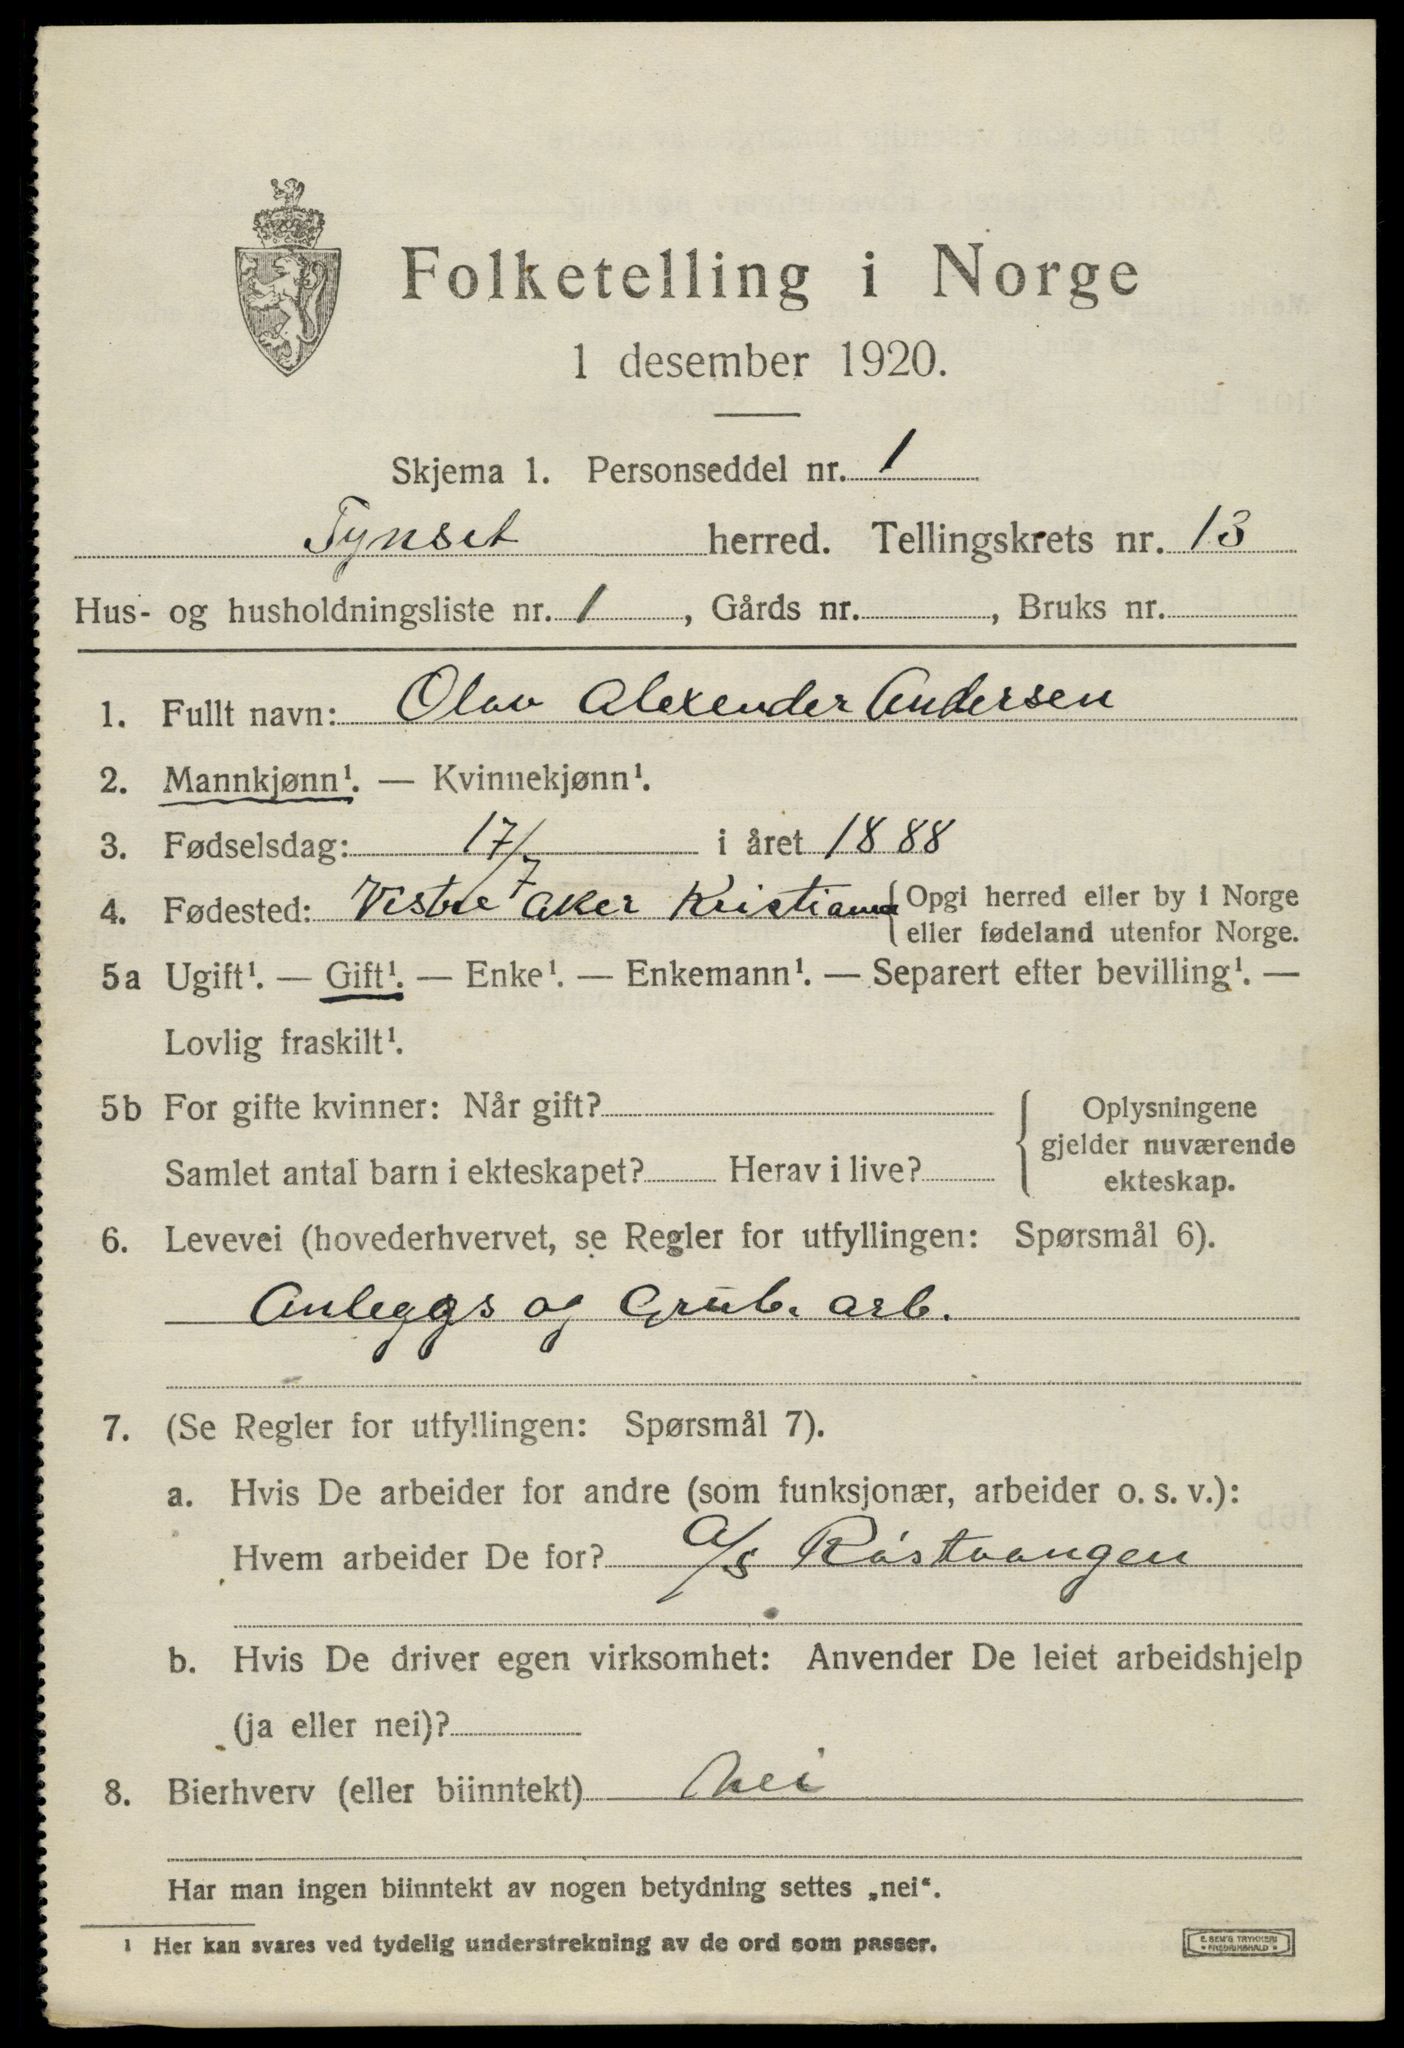 Folketelling i Norge
1 desember 1920.
Skjema 1. Personseddel nr. 1
Tynset herred. Tellingskrets nr. 13
Hus- og husholdningsliste nr. 1, Gårds nr. , Bruks nr.
1. Fullt navn: Olav Alexender Andersen
2. Mannkjønn¹. — Kvinnekjønn¹.
3. Fødselsdag: 17/7 i året 1888
4. Fødested: Vestre Aker Kristiania { Opgi herred eller by i Norge
eller fødeland utenfor Norge.
5a Ugift¹. — Gift¹. — Enke¹. — Enkemann¹. — Separert efter bevilling¹. —
Lovlig fraskilt¹.
5b For gifte kvinner: Når gift? { Oplysningene
gjelder nuværende
Samlet antal barn i ekteskapet? Herav i live? ekteskap.
6. Levevei (hovederhvervet, se Regler for utfyllingen: Spørsmål 6).
Anleggs og Grub. arb.
7. (Se Regler for utfyllingen: Spørsmål 7).
a. Hvis De arbeider for andre (som funksjonær, arbeider o. s. v.):
Hvem arbeider De for? A/s Røstvangen
b. Hvis De driver egen virksomhet: Anvender De leiet arbeidshjelp
(ja eller nei)?
8. Bierhverv (eller biinntekt) Nei
Har man ingen biinntekt av nogen betydning settes „nei“.
¹ Her kan svares ved tydelig understrekning av de ord som passer.
E. SEM'S TRYKKERI
* FREDRIKSHALD *